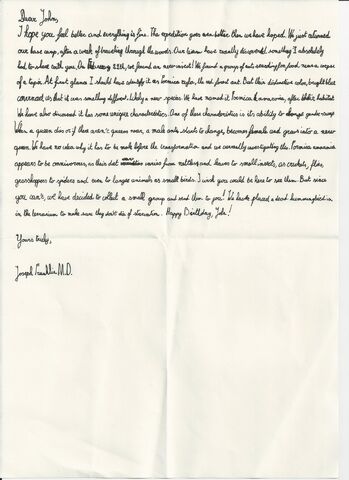 Dear John,
I hope you feel better and everything is fine. The expedition goes even better than we have hoped. We just returned
our base camp, after a week of traveling through the woods. Our team have recently discovered something I absolutely
had to share with you. On February 25th, we found an new ants! We found a group of ants scavenging for food, near a corpse
of a tapir. At first glance I should have identify it as Formica rufa, the red forest ant. But their distinctive color, bright blue
convinced us that it was something different. Likely a new species. We have named it Formica amazonia, after its habitat.
We have also discovered it has some unique characteristics. One of these characteristics is its ability to change gender. When
When a queen dies or if there aren't queens near, a male ants starts to change, becomes female and grows into a new
queen. We have no idea why it has to be male before the transformation and we currently investigating this. Formica amazonia
appears to be omnivorous, as their diet varies from rabbits and leaves to small insects, as crickets, flies,
grasshoppers to spiders and even to larger animals as small birds. I wish you could be here to see them. But since
you can't, we have decided to collect a small group and send them to you! We have placed a dead hummingbird in
in the terrarium, to make sure they don't die of starvation. Happy Birthday, John!
Yours truly,
Joseph Franklin M.D.